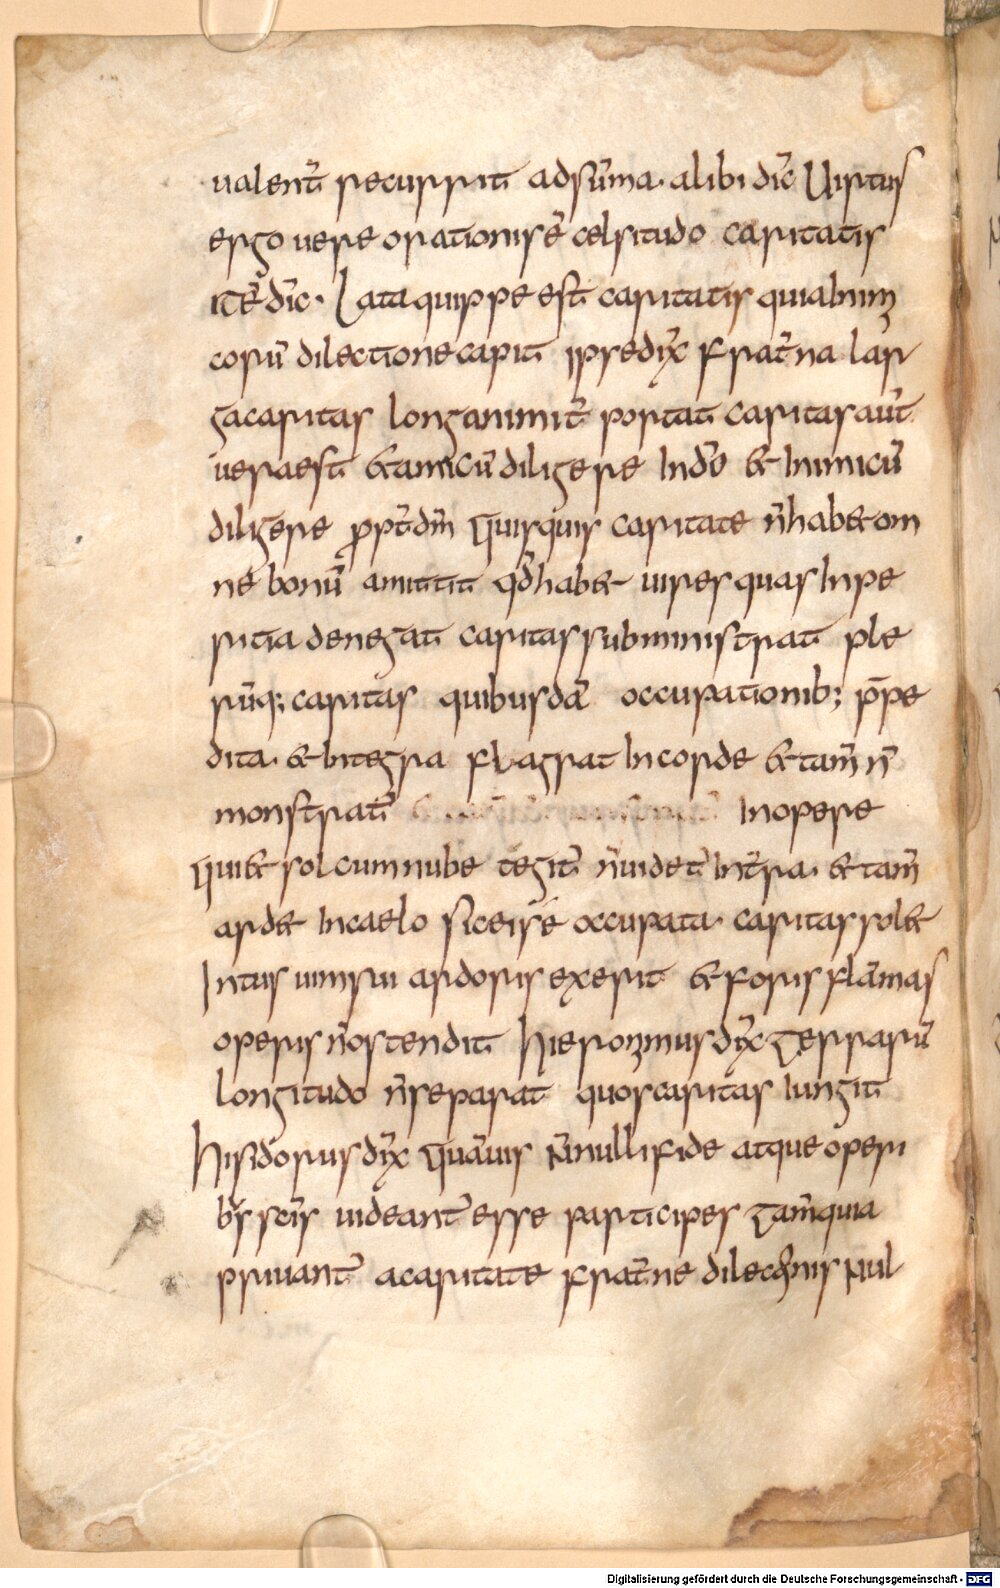 ualent̄ recurrit ad sūma. alibi dīc Uirtus
ergo uere orationis ē celsitudo caritatis
itē dīc. Lata quippe est caritatis quia Inim
corū dilectione capit ipse dix̄ frat̄na lar
ga caritas longanimit̄ portat caritas aut̄
uera est & amicū diligere In dō & Inimicū
diligere ꝓpt̄ dm̄ Quisquis caritate n̄ hab& om
ne bonū amittit qd̄ hab& uires quas Inpe
ritia denegat caritas subministrat ple
rūq; caritas quibusdā occupationib; p̄pe
dita. & Integra flagrat In corde & tam̄ n̄
monstrat̄ In opere
Qui & sol cum nube tegit̄ n̄ uidet̄ In t̄ra. & tam̄
ard& In caelo sic e͛ı͛sē occupata caritas sol&
Intus uim sui ardoris exerit & foris flāmas
operis n̄ ostendit hieronimus dix̄ Terrarū
longitudo n̄ separat quos caritas Iungit
hisidorus dix̄ Quāuis n̄nulli fide atque operi
bs̄ scīs uideant̄ esse participes Tam̄ quia
priuant̄ a caritate frat̄ne dilectionis Nul
Digitalisierung gefördert durch die Deutsche Forschungsgemeinschaft - DFG